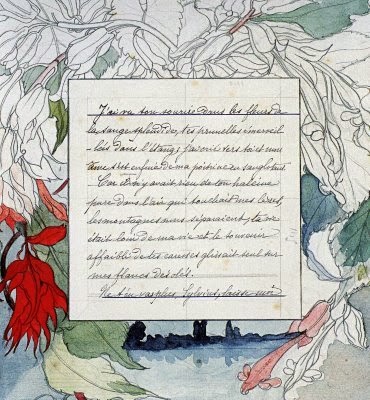 J'ai vu ton sourire dans les fleurs de
la sauge splendide, tes prunelles émerveil
lées dans l'étang; j'ai crié vers toi et une
âme s'est enfuie de ma poitrine en sanglots.
Car il n'y avait rien de ton haleine
pure dans l'air qui touchait mes lèvres,
les montagnes nous séparaient, ta vie
était loin de ma vie et le souvenir
affaibli de tes caresses glissait seul sur
mes blancs désolés.
Ne t'en vas plus, Sylvius, laisse-moi